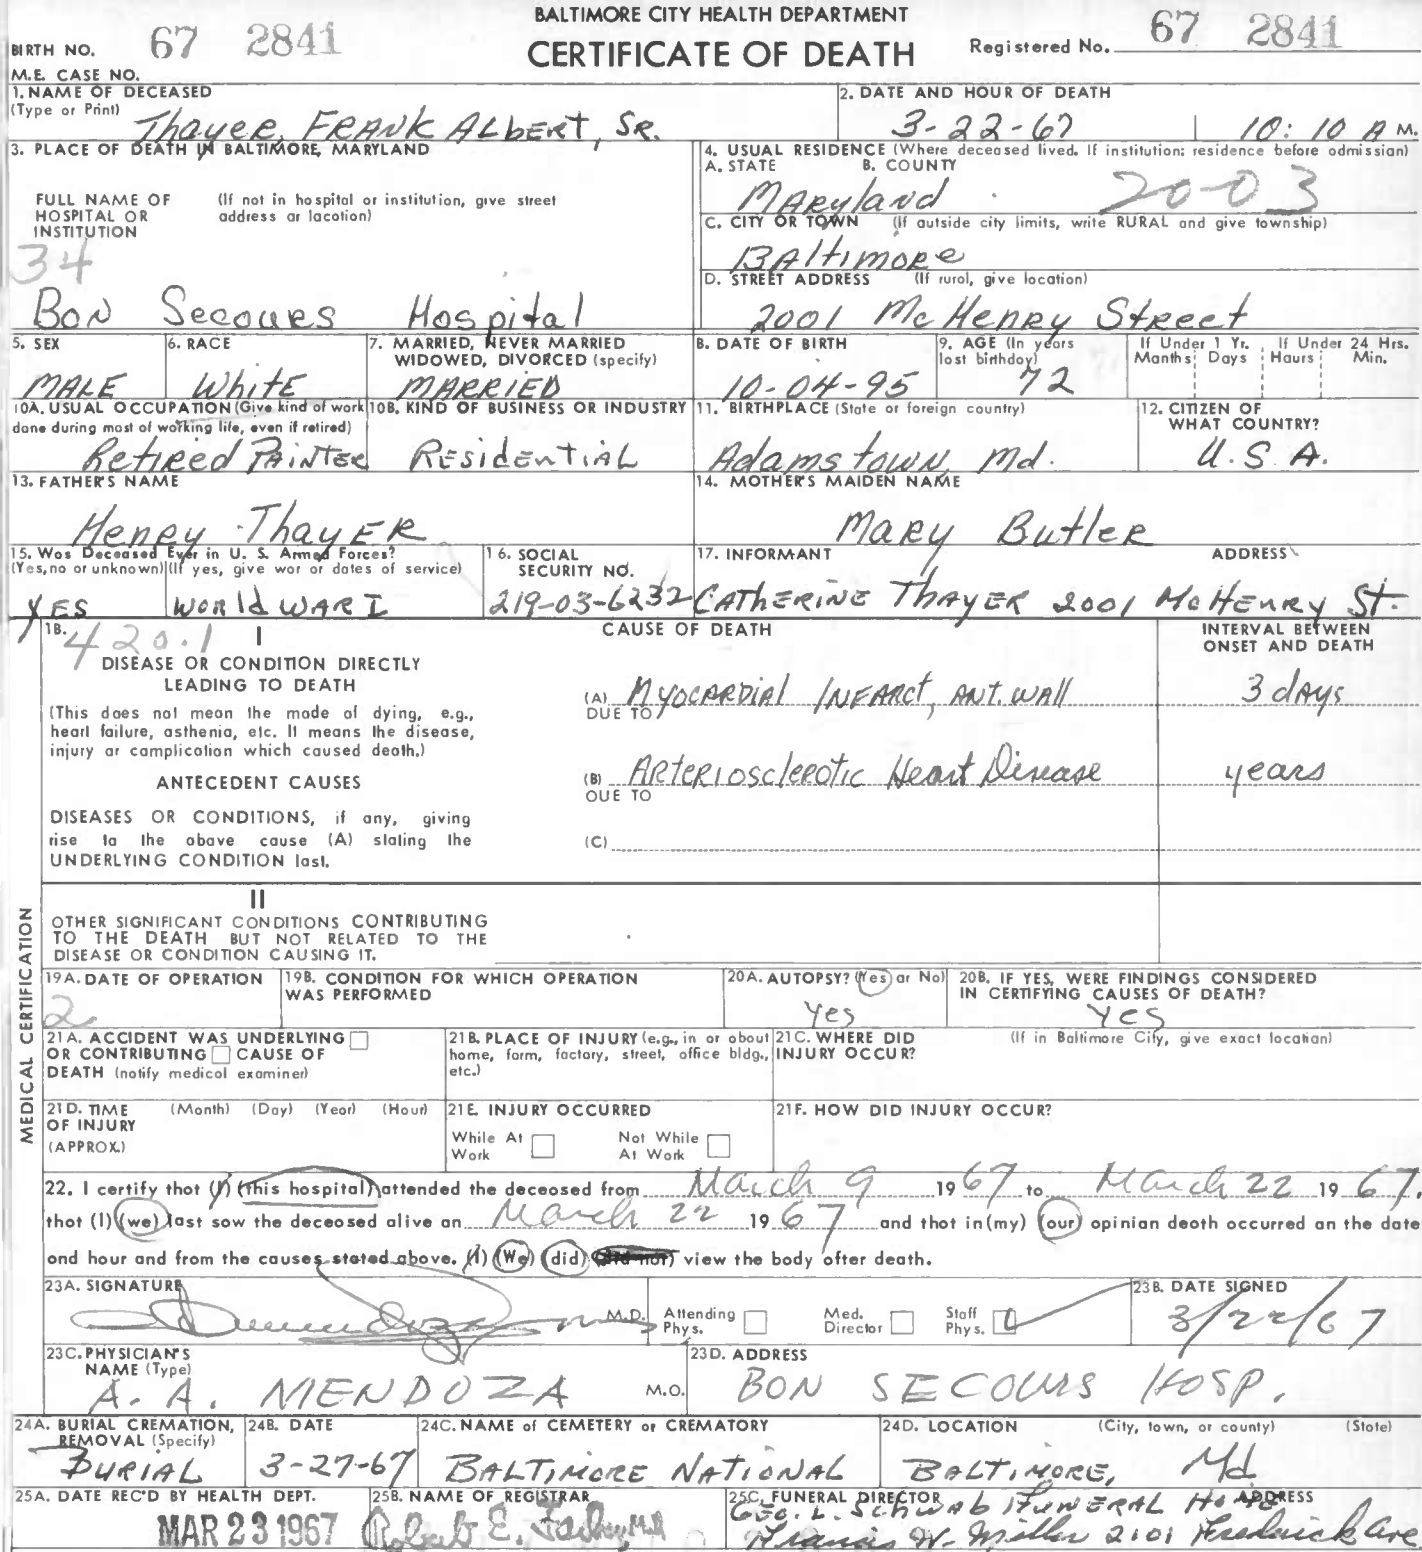 BALTIMORE CITY HEALTH DEPARTMENT
CERTIFICATE OF DEATH
BIRTH NO. 67 2841
Registered No. 67 2841
M.E. CASE NO.
1. NAME OF DECEASED
(Type or Print) Thayer, FRANK ALBERT, SR.
2. DATE AND HOUR OF DEATH
3-22-67 10:10 A M.
3. PLACE OF DEATH IN BALTIMORE, MARYLAND
FULL NAME OF HOSPITAL OR INSTITUTION
(If not in hospital or institution, give street address or location)
34
Bon Secours Hospital
4. USUAL RESIDENCE (Where deceased lived. If institution: residence before admission)
A. STATE B. COUNTY
Maryland 20-03
C. CITY OR TOWN (If outside city limits, write RURAL and give township)
BAltimore
D. STREET ADDRESS (If rural, give location)
2001 McHenry Street
5. SEX
MALE
6. RACE
White
7. MARRIED, NEVER MARRIED
WIDOWED, DIVORCED (specify)
MARRIED
8. DATE OF BIRTH
10-04-95
9. AGE (In years last birthday)
72
If Under 1 Yr. Months Days
If Under 24 Hrs. Hours Min.
10A. USUAL OCCUPATION (Give kind of work done during most of working life, even if retired)
Retired PAINTER
10B. KIND OF BUSINESS OR INDUSTRY
RESidENTIAL
11. BIRTHPLACE (State or foreign country)
Adamstown, Md.
12. CITIZEN OF WHAT COUNTRY?
U.S.A.
13. FATHER'S NAME
Henry Thayer
14. MOTHER'S MAIDEN NAME
MARY Butler
15. Was Deceased Ever in U. S. Armed Forces?
(Yes, no or unknown) (If yes, give war or dates of service)
YES World WAR I
16. SOCIAL SECURITY NO.
219-03-6232
17. INFORMANT ADDRESS
CATHERINE THAYER 2001 McHENRY St.
MEDICAL CERTIFICATION
18. 420.1
I
DISEASE OR CONDITION DIRECTLY
LEADING TO DEATH
(This does not mean the mode of dying, e.g.,
heart failure, asthenia, etc. It means the disease,
injury or complication which caused death.)
ANTECEDENT CAUSES
DISEASES OR CONDITIONS, if any, giving
rise to the above cause (A) stating the
UNDERLYING CONDITION last.
CAUSE OF DEATH
INTERVAL BETWEEN ONSET AND DEATH
(A) MYOCARDIAL INFARCT, ANT. WALL 3 days
DUE TO
(B) ARTERIOSCLEROTIC Heart Disease years
DUE TO
(C)
II
OTHER SIGNIFICANT CONDITIONS CONTRIBUTING
TO THE DEATH BUT NOT RELATED TO THE
DISEASE OR CONDITION CAUSING IT.
19A. DATE OF OPERATION
2
19B. CONDITION FOR WHICH OPERATION WAS PERFORMED
20A. AUTOPSY? (Yes or No)
Yes
20B. IF YES, WERE FINDINGS CONSIDERED IN CERTIFYING CAUSES OF DEATH?
YES
21A. ACCIDENT WAS UNDERLYING
OR CONTRIBUTING CAUSE OF
DEATH (notify medical examiner)
21B. PLACE OF INJURY (e.g., in or about
home, farm, factory, street, office bldg.,
etc.)
21C. WHERE DID INJURY OCCUR?
(If in Baltimore City, give exact location)
21D. TIME OF INJURY (APPROX.)
(Month) (Day) (Year) (Hour)
21E. INJURY OCCURRED
While At Work Not While At Work
21F. HOW DID INJURY OCCUR?
22. I certify that (I) (this hospital) attended the deceased from March 9 1967 to March 22 1967,
that (I) (we) last saw the deceased alive on March 22 1967 and that in (my) (our) opinion death occurred on the date
and hour and from the causes stated above. (I) (We) (did) (did not) view the body after death.
23A. SIGNATURE
M.D.
Attending Phys. Med. Director Staff Phys.
23B. DATE SIGNED
3/22/67
23C. PHYSICIAN'S NAME (Type)
A. A. MENDOZA M.D.
23D. ADDRESS
BON SECOURS HOSP.
24A. BURIAL CREMATION, REMOVAL (Specify)
BURIAL
24B. DATE
3-27-67
24C. NAME of CEMETERY or CREMATORY
BALTIMORE NATIONAL
24D. LOCATION (City, town, or county) (State)
BALTIMORE, Md
25A. DATE REC'D BY HEALTH DEPT.
MAR 23 1967
25B. NAME OF REGISTRAR
Robert E. Farber, M.D.
25C. FUNERAL DIRECTOR ADDRESS
GEO. L. SCHWAB FUNERAL HOME
Francis W. Miller 2101 Frederick Ave.